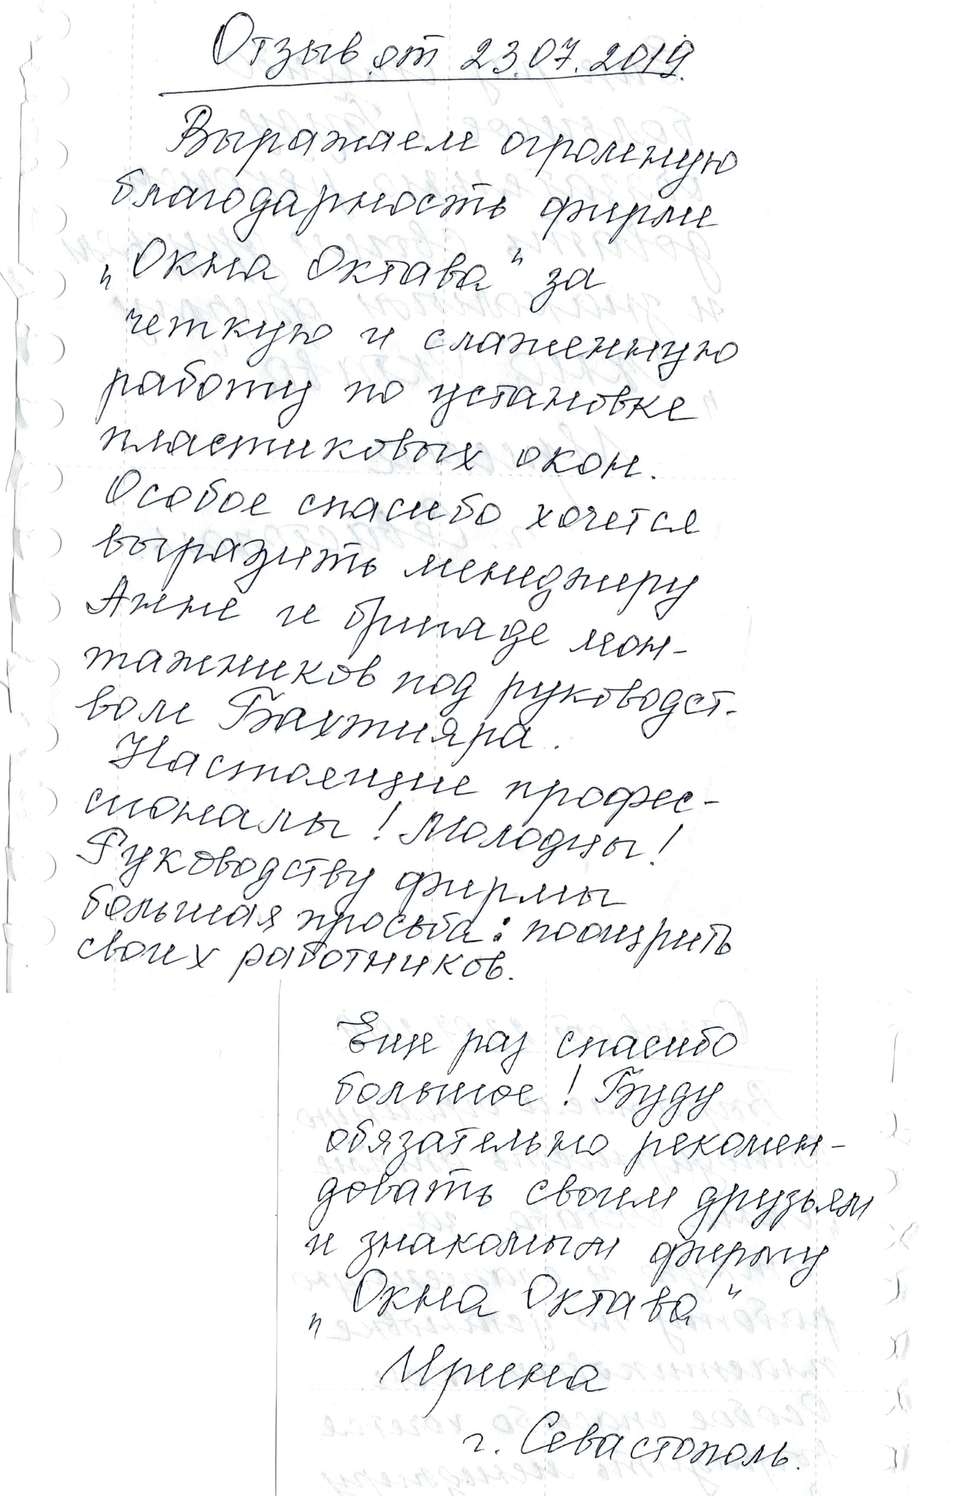 Отзыв от 23.07.2019.
Выражаем огромную
благодарность фирме
„Окна Октава" за
четкую и слаженную
работу по установке
пластиковых окон.
Особое спасибо хочется
выразить менеджеру
Анне и бригаде мон-
тажников под руководст-
вом Бахтияра.
Настоящие профес-
сионалы! Молодцы!
Руководству фирмы
большая просьба: поощрить
своих работников.
Еще раз спасибо
большое! Буду
обязательно рекомен-
довать своим друзьям
и знакомым фирму
„Окна Октава"
Ирина
г. Севастополь.